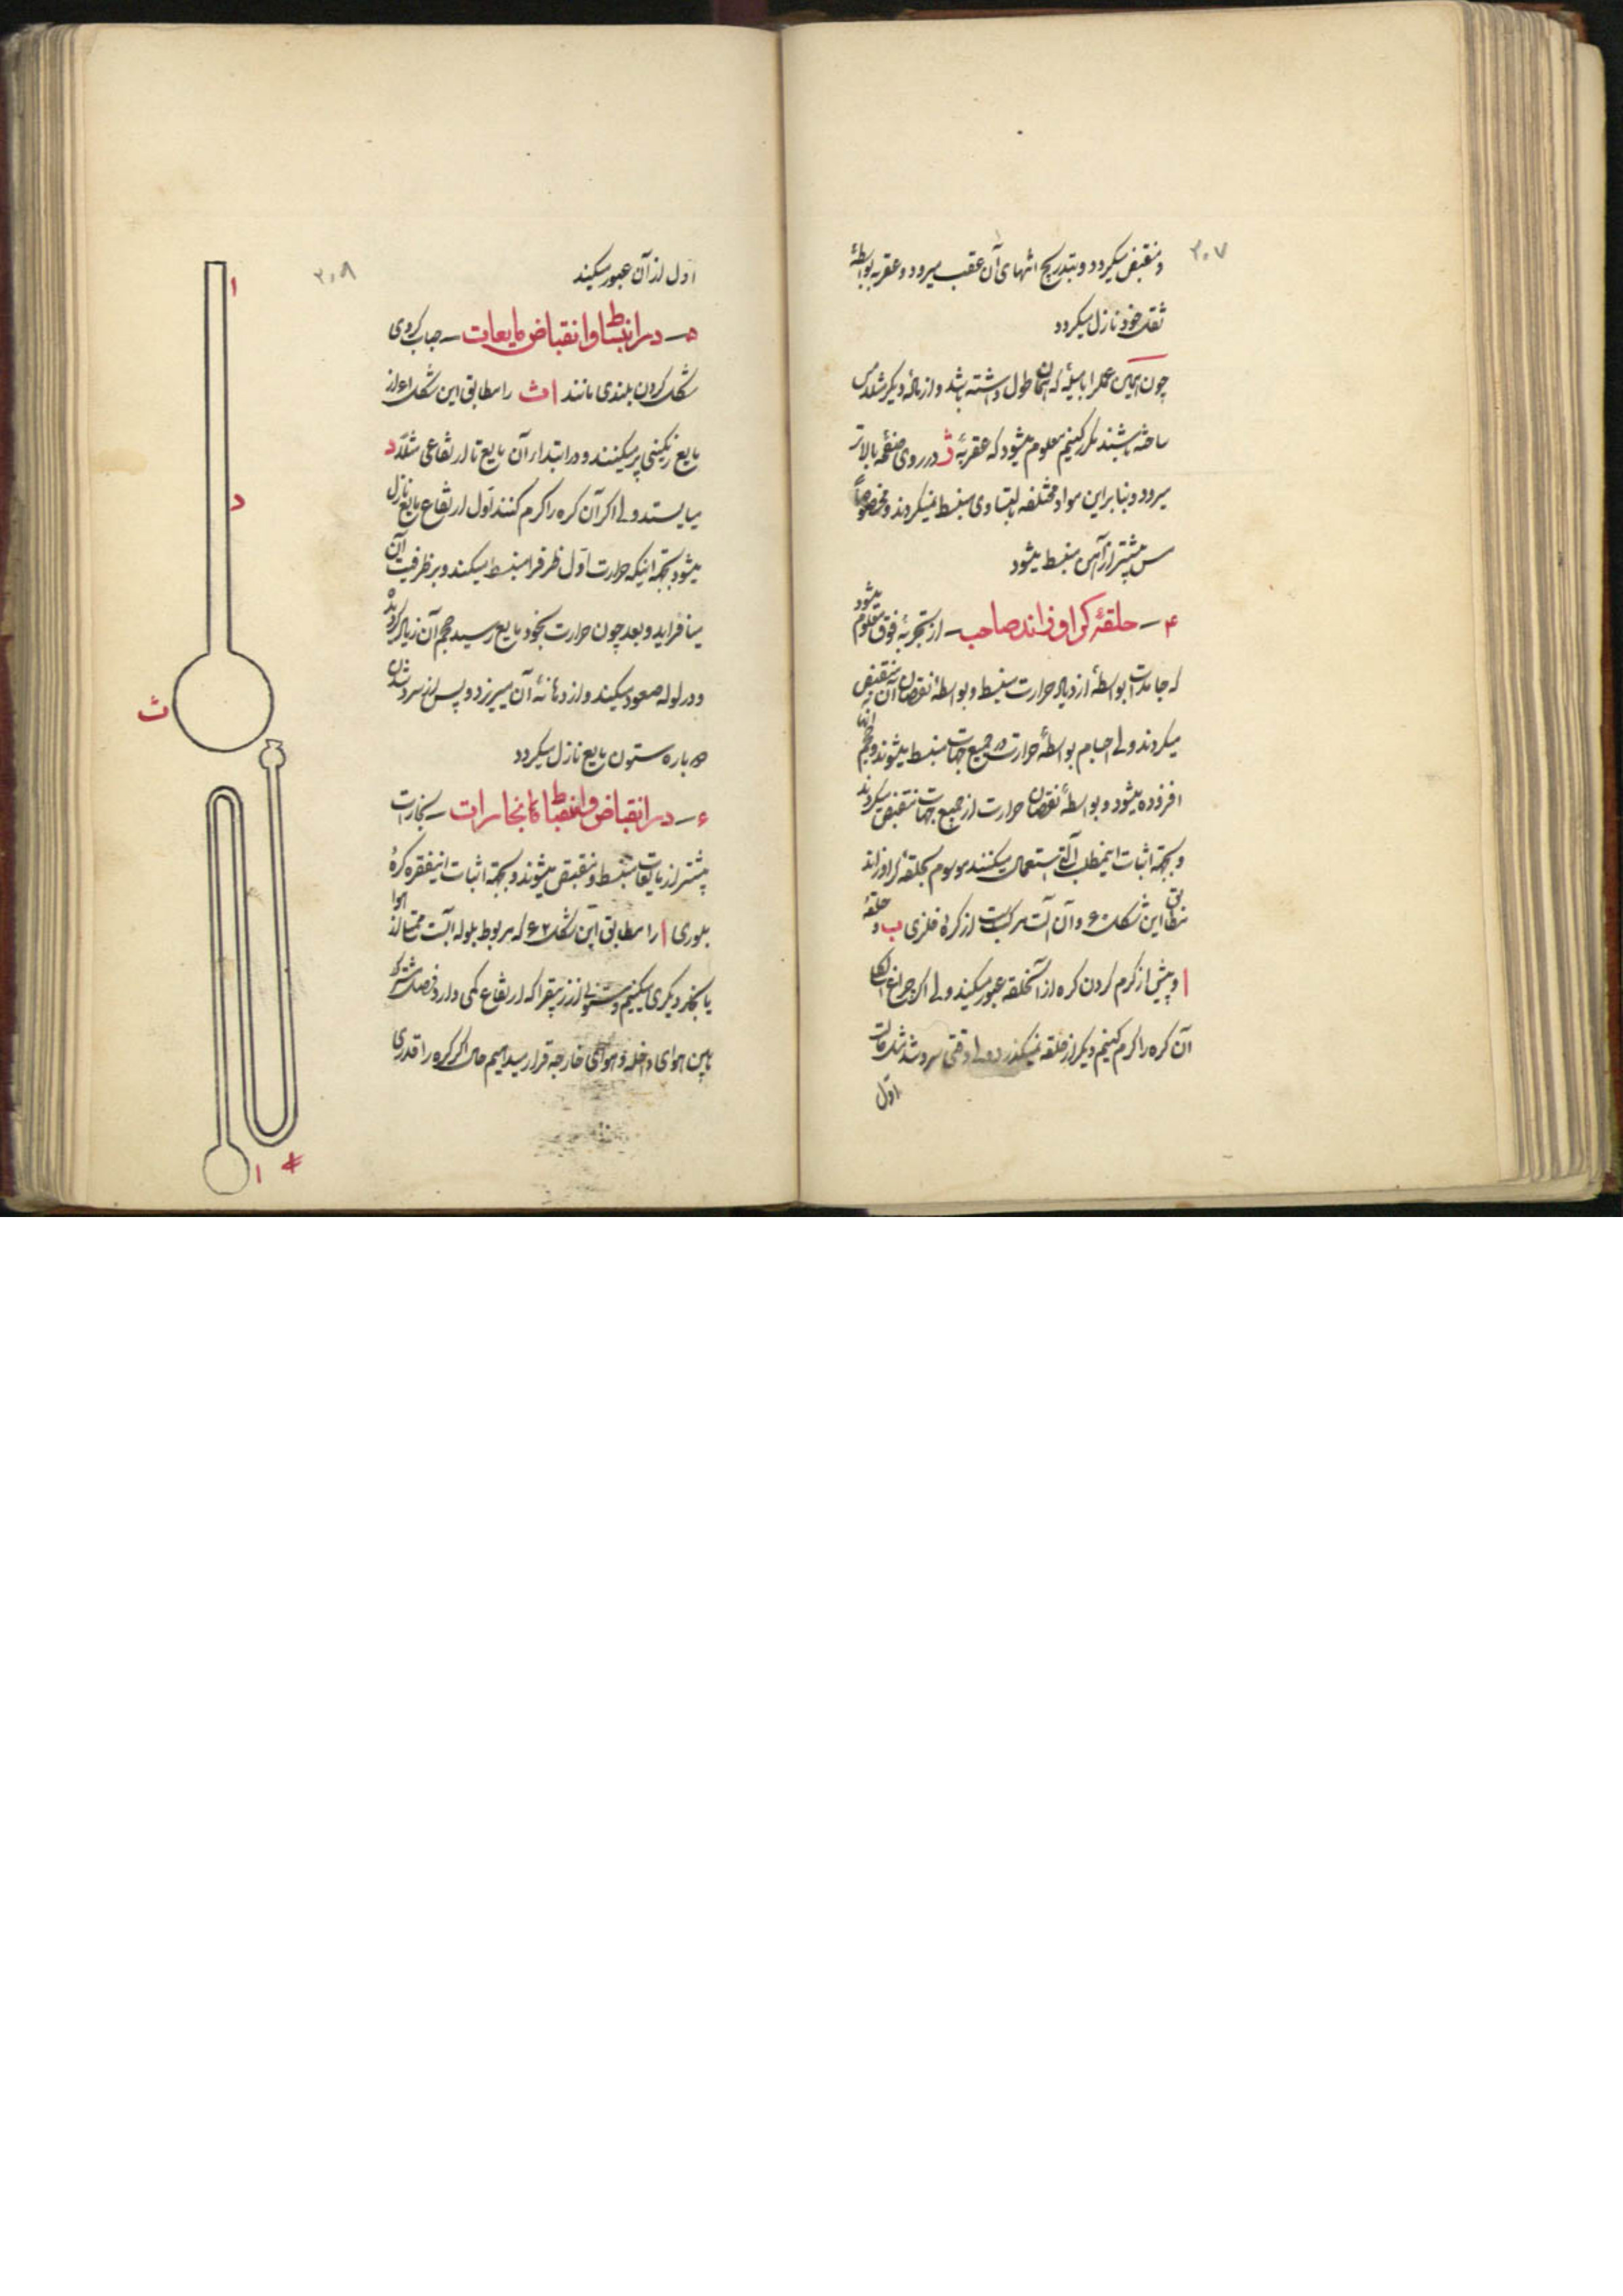 ۳۰۷
و منقبض میکردد و بتدریج انتهای آن عقب میرود و عقربه بواسطهٔ
ثقل خود نازل میکردد
چون همین عمل را با میلهٔ که همان طول داشته باشد و از مادهٔ دیکر مثل مس
ساخته باشند مکرر کنیم معلوم میشود که عقربهٔ ث در روی صفحه بالاتر
میرود و بنابراین مواد مختلفه بتساوی منبسط نمیکردند و مخصوصاً
مس بیشتر از آهن منبسط میشود
۴ – حلقهٔ کراوزاند صاحب – از تجربهٔ فوق معلوم میشود
که جامدات بواسطهٔ ازدیاد حرارت منبسط و بواسطهٔ نقصان آن منقبض
میکردند ولی اجسام بواسطهٔ حرارت در جمیع جهات منبسط میشوند و حجم آنها
افزوده میشود و بواسطهٔ نقصان حرارت از جمیع جهات منقبض میکردند
و بجهة اثبات اینمطلب آلتی استعمال میکنند موسوم بحلقهٔ کراوزاند
مطابق این شکل ۶۰ و آن آلت مرکبست از کرهٔ فلزی ب و حلقهٔ
ا و پیش از کرم کردن کره از آنحلقه عبور میکند ولی اکر بچراغ الکل
آن کره را کرم کنیم دیکر از حلقه نمیکذرد ولی وقتی سرد شد مثل حالت
اول
۳۰۸
اول از آن عبور میکند
۵ – در انبساط و انقباض مایعات – حباب کروی
شکل کردن بلندی مانند ا ث را مطابق این شکل ۶۱ از
مایع رنکینی پر میکنند و در ابتداء آن مایع تا ارتفاعی مثلاً د
میایستد ولی اکر آن کره را کرم کنند اول ارتفاع مایع نازل
میشود بجهة اینکه حرارت اول ظرف را منبسط میکند و بر ظرفیت آن
میافزاید و بعد چون حرارت بخود مایع رسید حجم آن زیاد کردیده
و در لوله صعود میکند و از دهانهٔ آن میریزد و پس از سرد شدن
دوباره ستون مایع نازل میکردد
۶ – در انقباض و انبساط بخارات – بخارات
بیشتر از مایعات منبسط و منقبض میشوند و بجهة اثبات اینفقره کرهٔ
بلوری ا را مطابق این شکل ۶۲ که مربوط بلوله ایست ممتلی از هوا
یا بخار دیکری میکنیم و ستونی از زیبق را که ارتفاع کمی دارد فصل مشترک
مابین هوای داخله و هوای خارجه قرار میدهیم حال اکر کره را قدری
ا
د
ث
ا